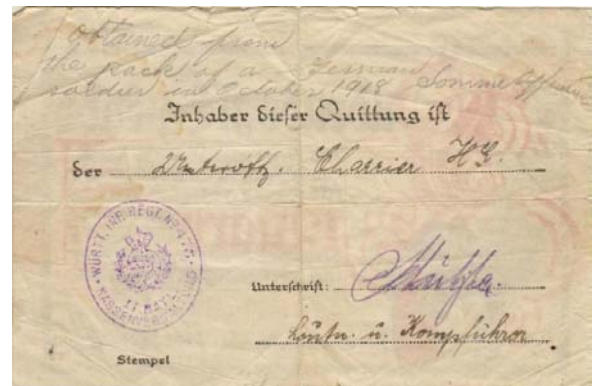 obtained from
the pack of a German
soldier in October 1918 Somme Offensive
Inhaber dieser Quittung ist
der Unteroffz. Charrier
WÜRTT. INF. REGT. No
II. BATL.
KASSENVERWALTUNG
Unterschrift:
Leutn. u. Kompführer
Stempel